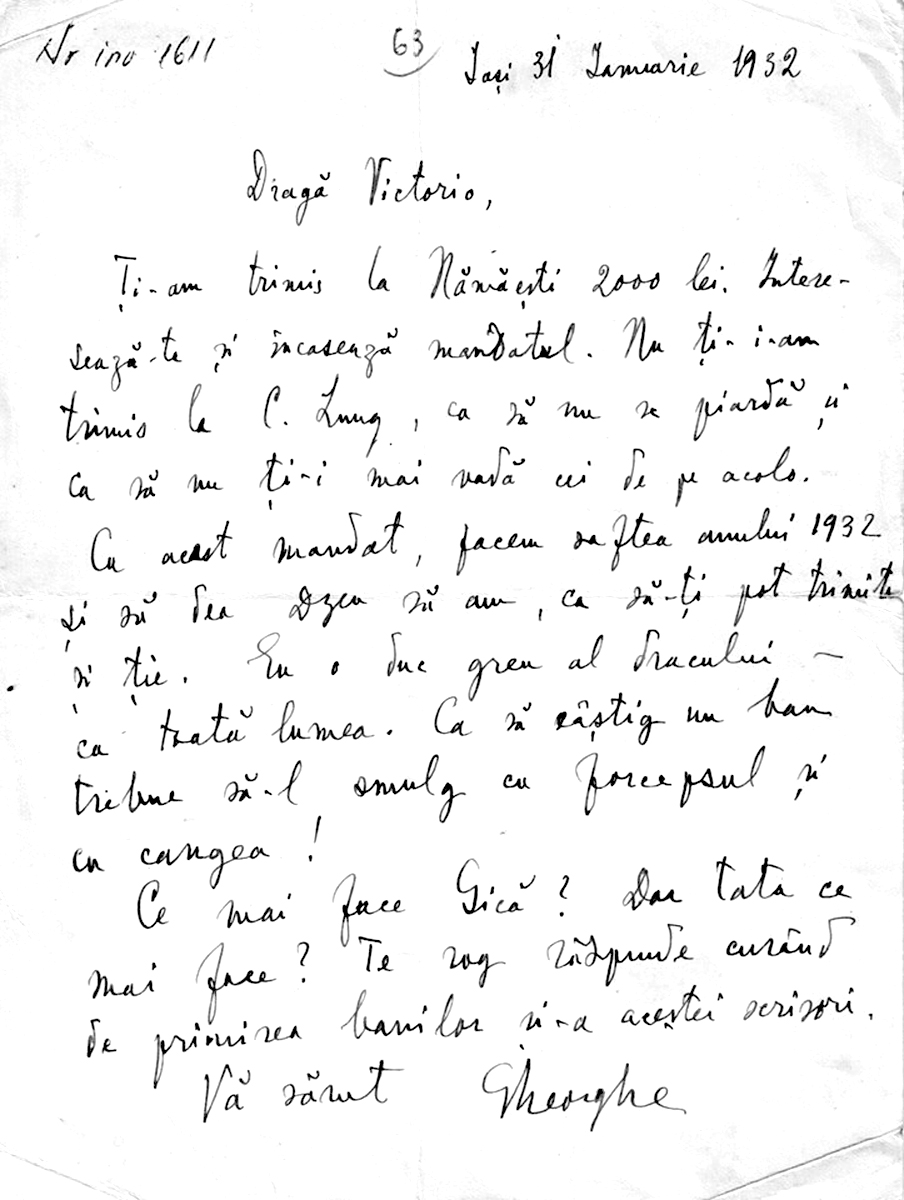 Nr inv 1611
63
Iași 31 Ianuarie 1932
Dragă Victorio,
Ți-am trimis la Nămăești 2000 lei. Intere-
sează-te și încasează mandatul. Nu ți-i-am
trimis la C. Lung, ca să nu se piardă și
ca să nu ți-i mai vadă cei de pe acolo.
Cu acest mandat, facem saftea anului 1932
și să dea Dzeu să am, ca să-ți pot trimite
și ție. Eu o duc greu al dracului –
ca toată lumea. Ca să câștig un ban
trebue să-l smulg cu forcepsul și
cu cangea!
Ce mai face Gică? Dar tata ce
mai face? Te rog răspunde curând
de primirea banilor și-a acestei scrisori.
Vă sărut Gheorghe